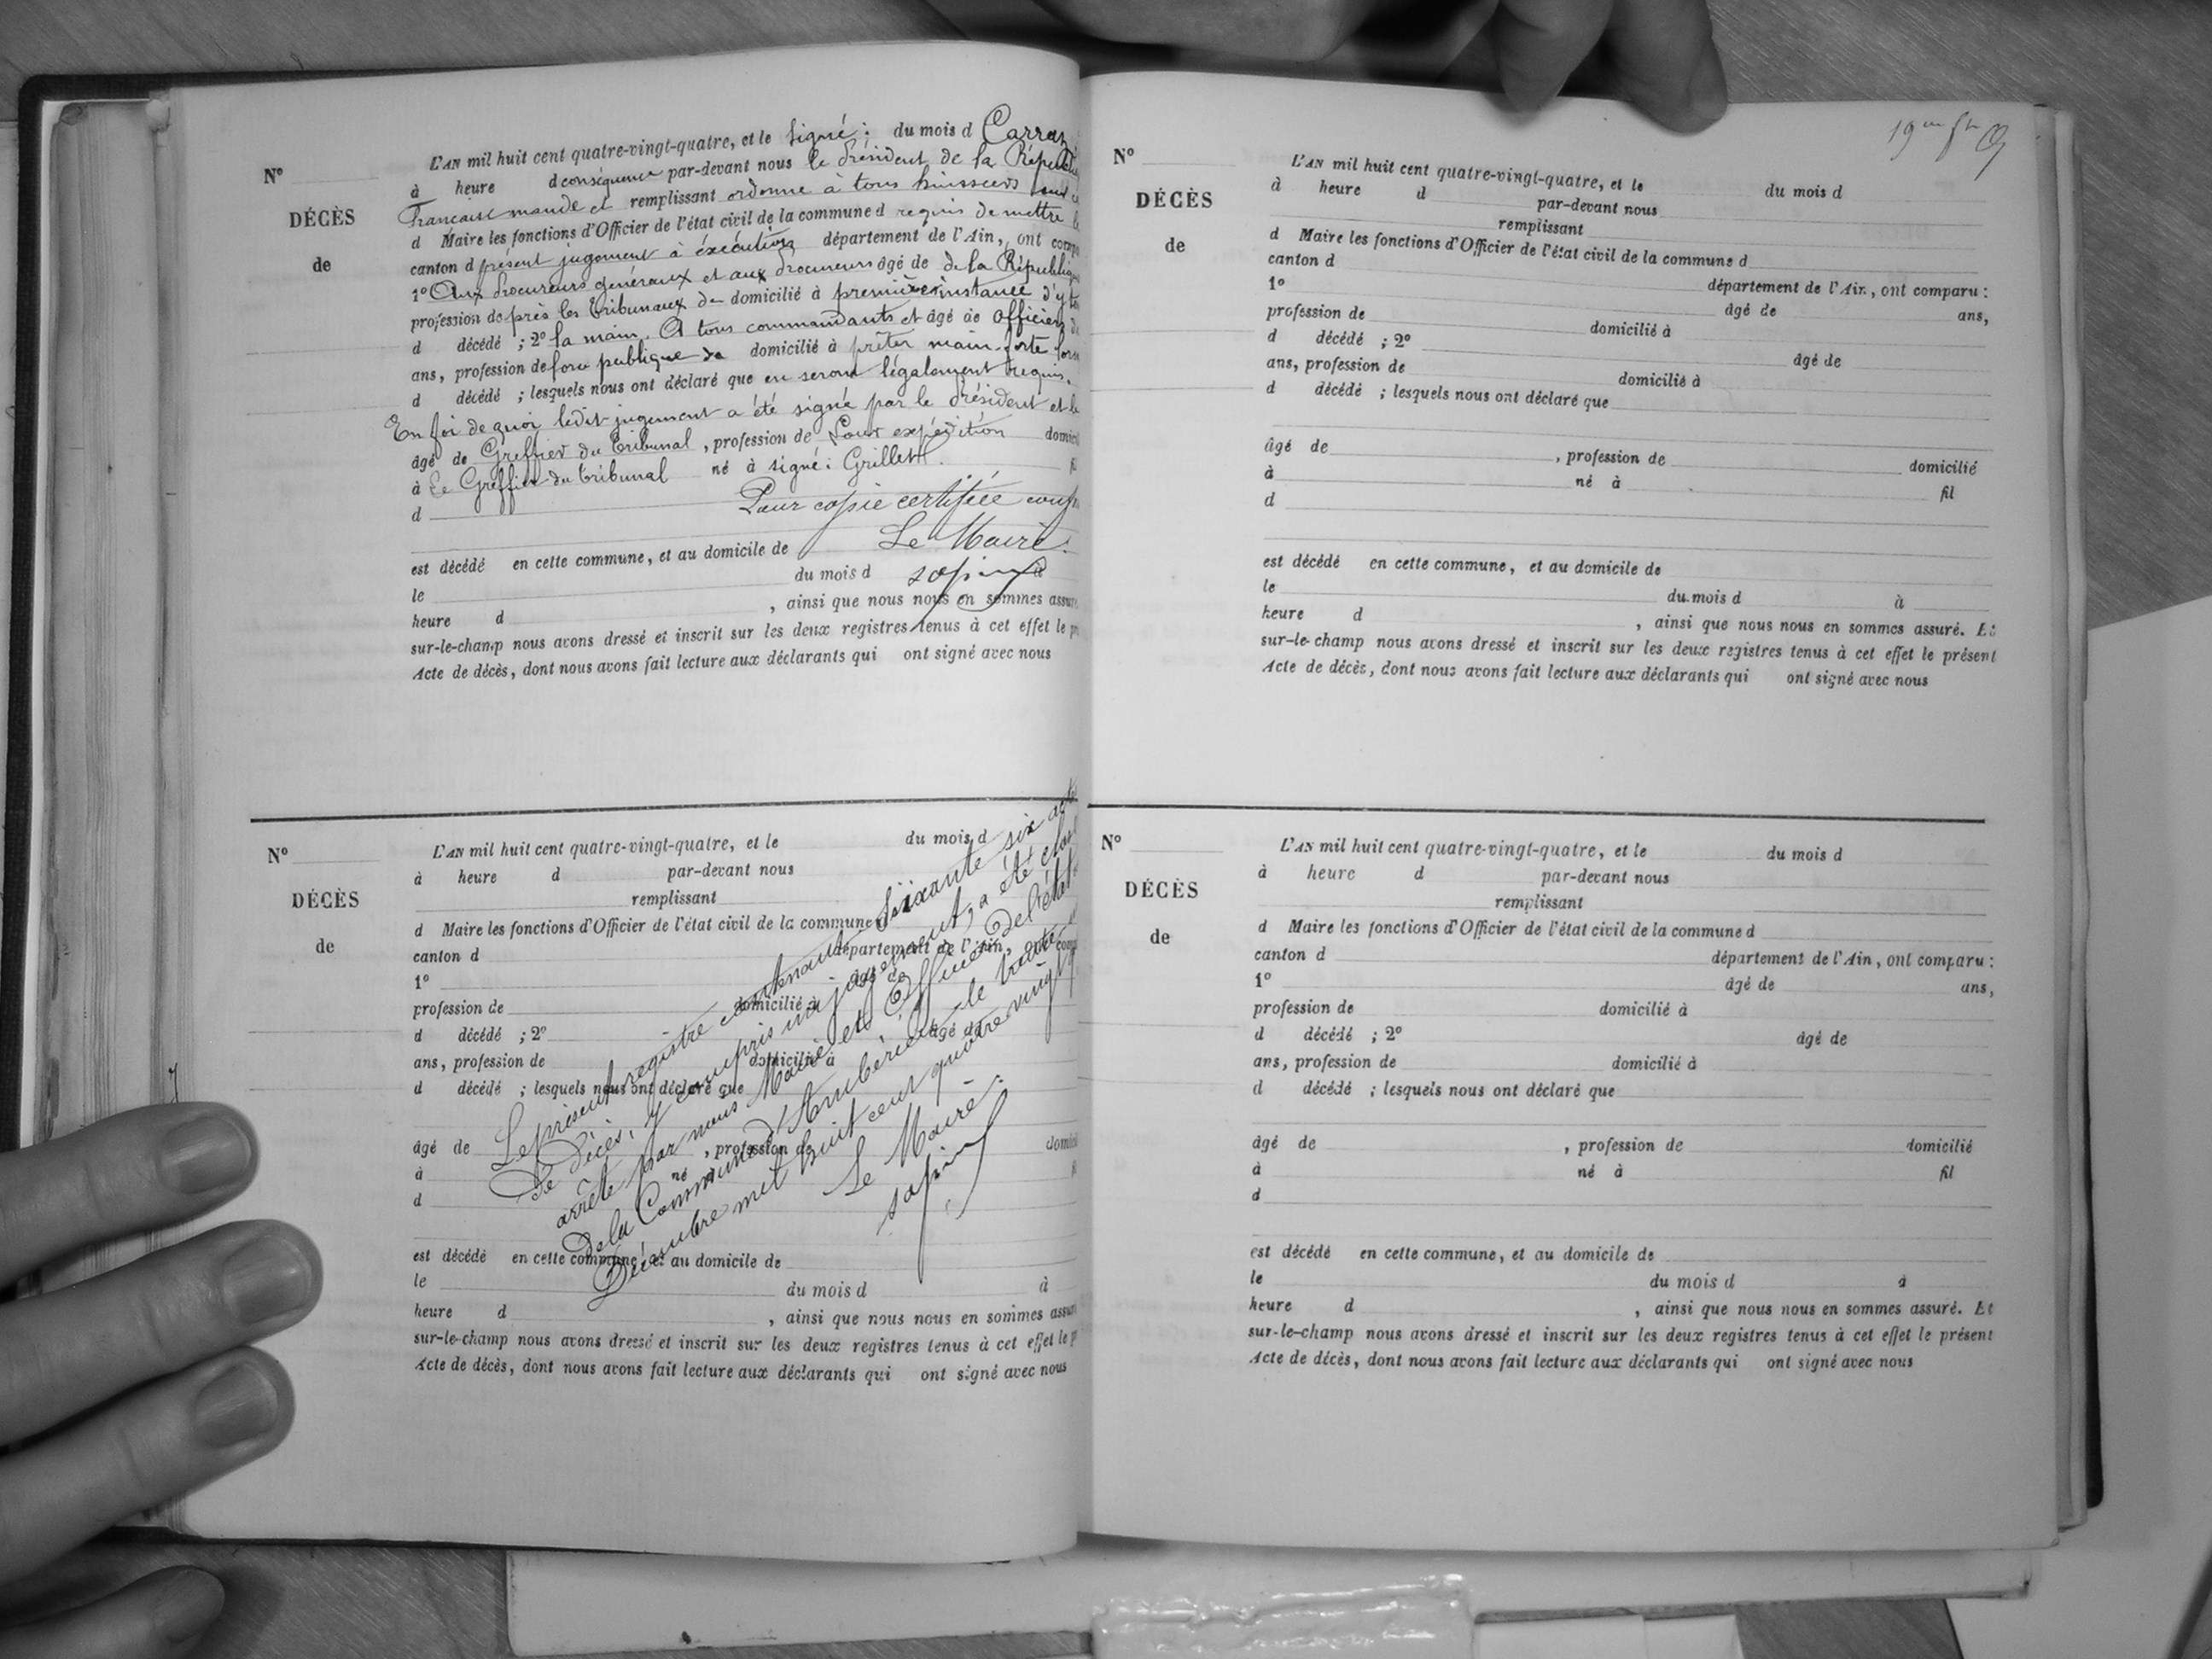 N°
DÉCÈS
de
L'AN mil huit cent quatre-vingt-quatre, et le Signé : du mois d Carraz
à heure d conséquence par-devant nous le Président de la Républi
Française mande et remplissant ordonne à tous huissiers sur ce
d Maire les fonctions d'Officier de l'état civil de la commune d requis de mettre le
canton d présent jugement à éxécution département de l'Ain, ont comp
1° Aux Procureurs généraux et aux Procureurs âgé de de la République
profession de près les Tribunaux de domicilié à première instance d'y te
d décédé ; 2° la main. A tous commandants et âgé de officiers de
ans, profession de force publique de domicilié à prêter main-forte lors
d décédé ; lesquels nous ont déclaré que en seront légalement requis.
En foi de quoi ledit jugement a été signé par le Président et le
âgé de Greffier du Tribunal , profession de Pour expédition domici
à Le Greffier du tribunal né à signé : Grillet. fi
d Pour copie certifiée conf
Le Maire.
est décédé en cette commune, et au domicile de
le du mois d Sapin à
heure d , ainsi que nous nous en sommes assuré
sur-le-champ nous avons dressé et inscrit sur les deux registres tenus à cet effet le p
Acte de décès, dont nous avons fait lecture aux déclarants qui ont signé avec nous
N°
DÉCÈS
de
L'AN mil huit cent quatre-vingt-quatre, et le du mois d
à heure d par-devant nous
remplissant
d Maire les fonctions d'Officier de l'état civil de la commune d
canton d département de l'Ain, ont comp
1° âgé de
profession de domicilié à
d décédé ; 2° âgé de
ans, profession de domicilié à
d décédé ; lesquels nous ont déclaré que
âgé de , profession de domici
à né à fi
d
Le présent registre contenant Soixante six actes
de Décès, y compris un jugement, a été clos
arrêté par nous Maire et Officier de l'état
de la Commune d'Ambérieu le trente
Décembre mil huit cent quatre vingt
Le Maire.
Sapin
est décédé en cette commune, et au domicile de
le du mois d à
heure d , ainsi que nous nous en sommes assuré
sur-le-champ nous avons dressé et inscrit sur les deux registres tenus à cet effet le p
Acte de décès, dont nous avons fait lecture aux déclarants qui ont signé avec nous
19
N°
DÉCÈS
de
L'AN mil huit cent quatre-vingt-quatre, et le du mois d
à heure d par-devant nous
remplissant
d Maire les fonctions d'Officier de l'état civil de la commune d
canton d département de l'Ain, ont comparu :
1° âgé de ans,
profession de domicilié à
d décédé ; 2° âgé de
ans, profession de domicilié à
d décédé ; lesquels nous ont déclaré que
âgé de , profession de domicilié
à né à fil
d
est décédé en cette commune, et au domicile de
le du mois d à
heure d , ainsi que nous nous en sommes assuré. Et
sur-le-champ nous avons dressé et inscrit sur les deux registres tenus à cet effet le présent
Acte de décès, dont nous avons fait lecture aux déclarants qui ont signé avec nous
N°
DÉCÈS
de
L'AN mil huit cent quatre-vingt-quatre, et le du mois d
à heure d par-devant nous
remplissant
d Maire les fonctions d'Officier de l'état civil de la commune d
canton d département de l'Ain, ont comparu :
1° âgé de ans,
profession de domicilié à
d décédé ; 2° âgé de
ans, profession de domicilié à
d décédé ; lesquels nous ont déclaré que
âgé de , profession de domicilié
à né à fil
d
est décédé en cette commune, et au domicile de
le du mois d à
heure d , ainsi que nous nous en sommes assuré. Et
sur-le-champ nous avons dressé et inscrit sur les deux registres tenus à cet effet le présent
Acte de décès, dont nous avons fait lecture aux déclarants qui ont signé avec nous